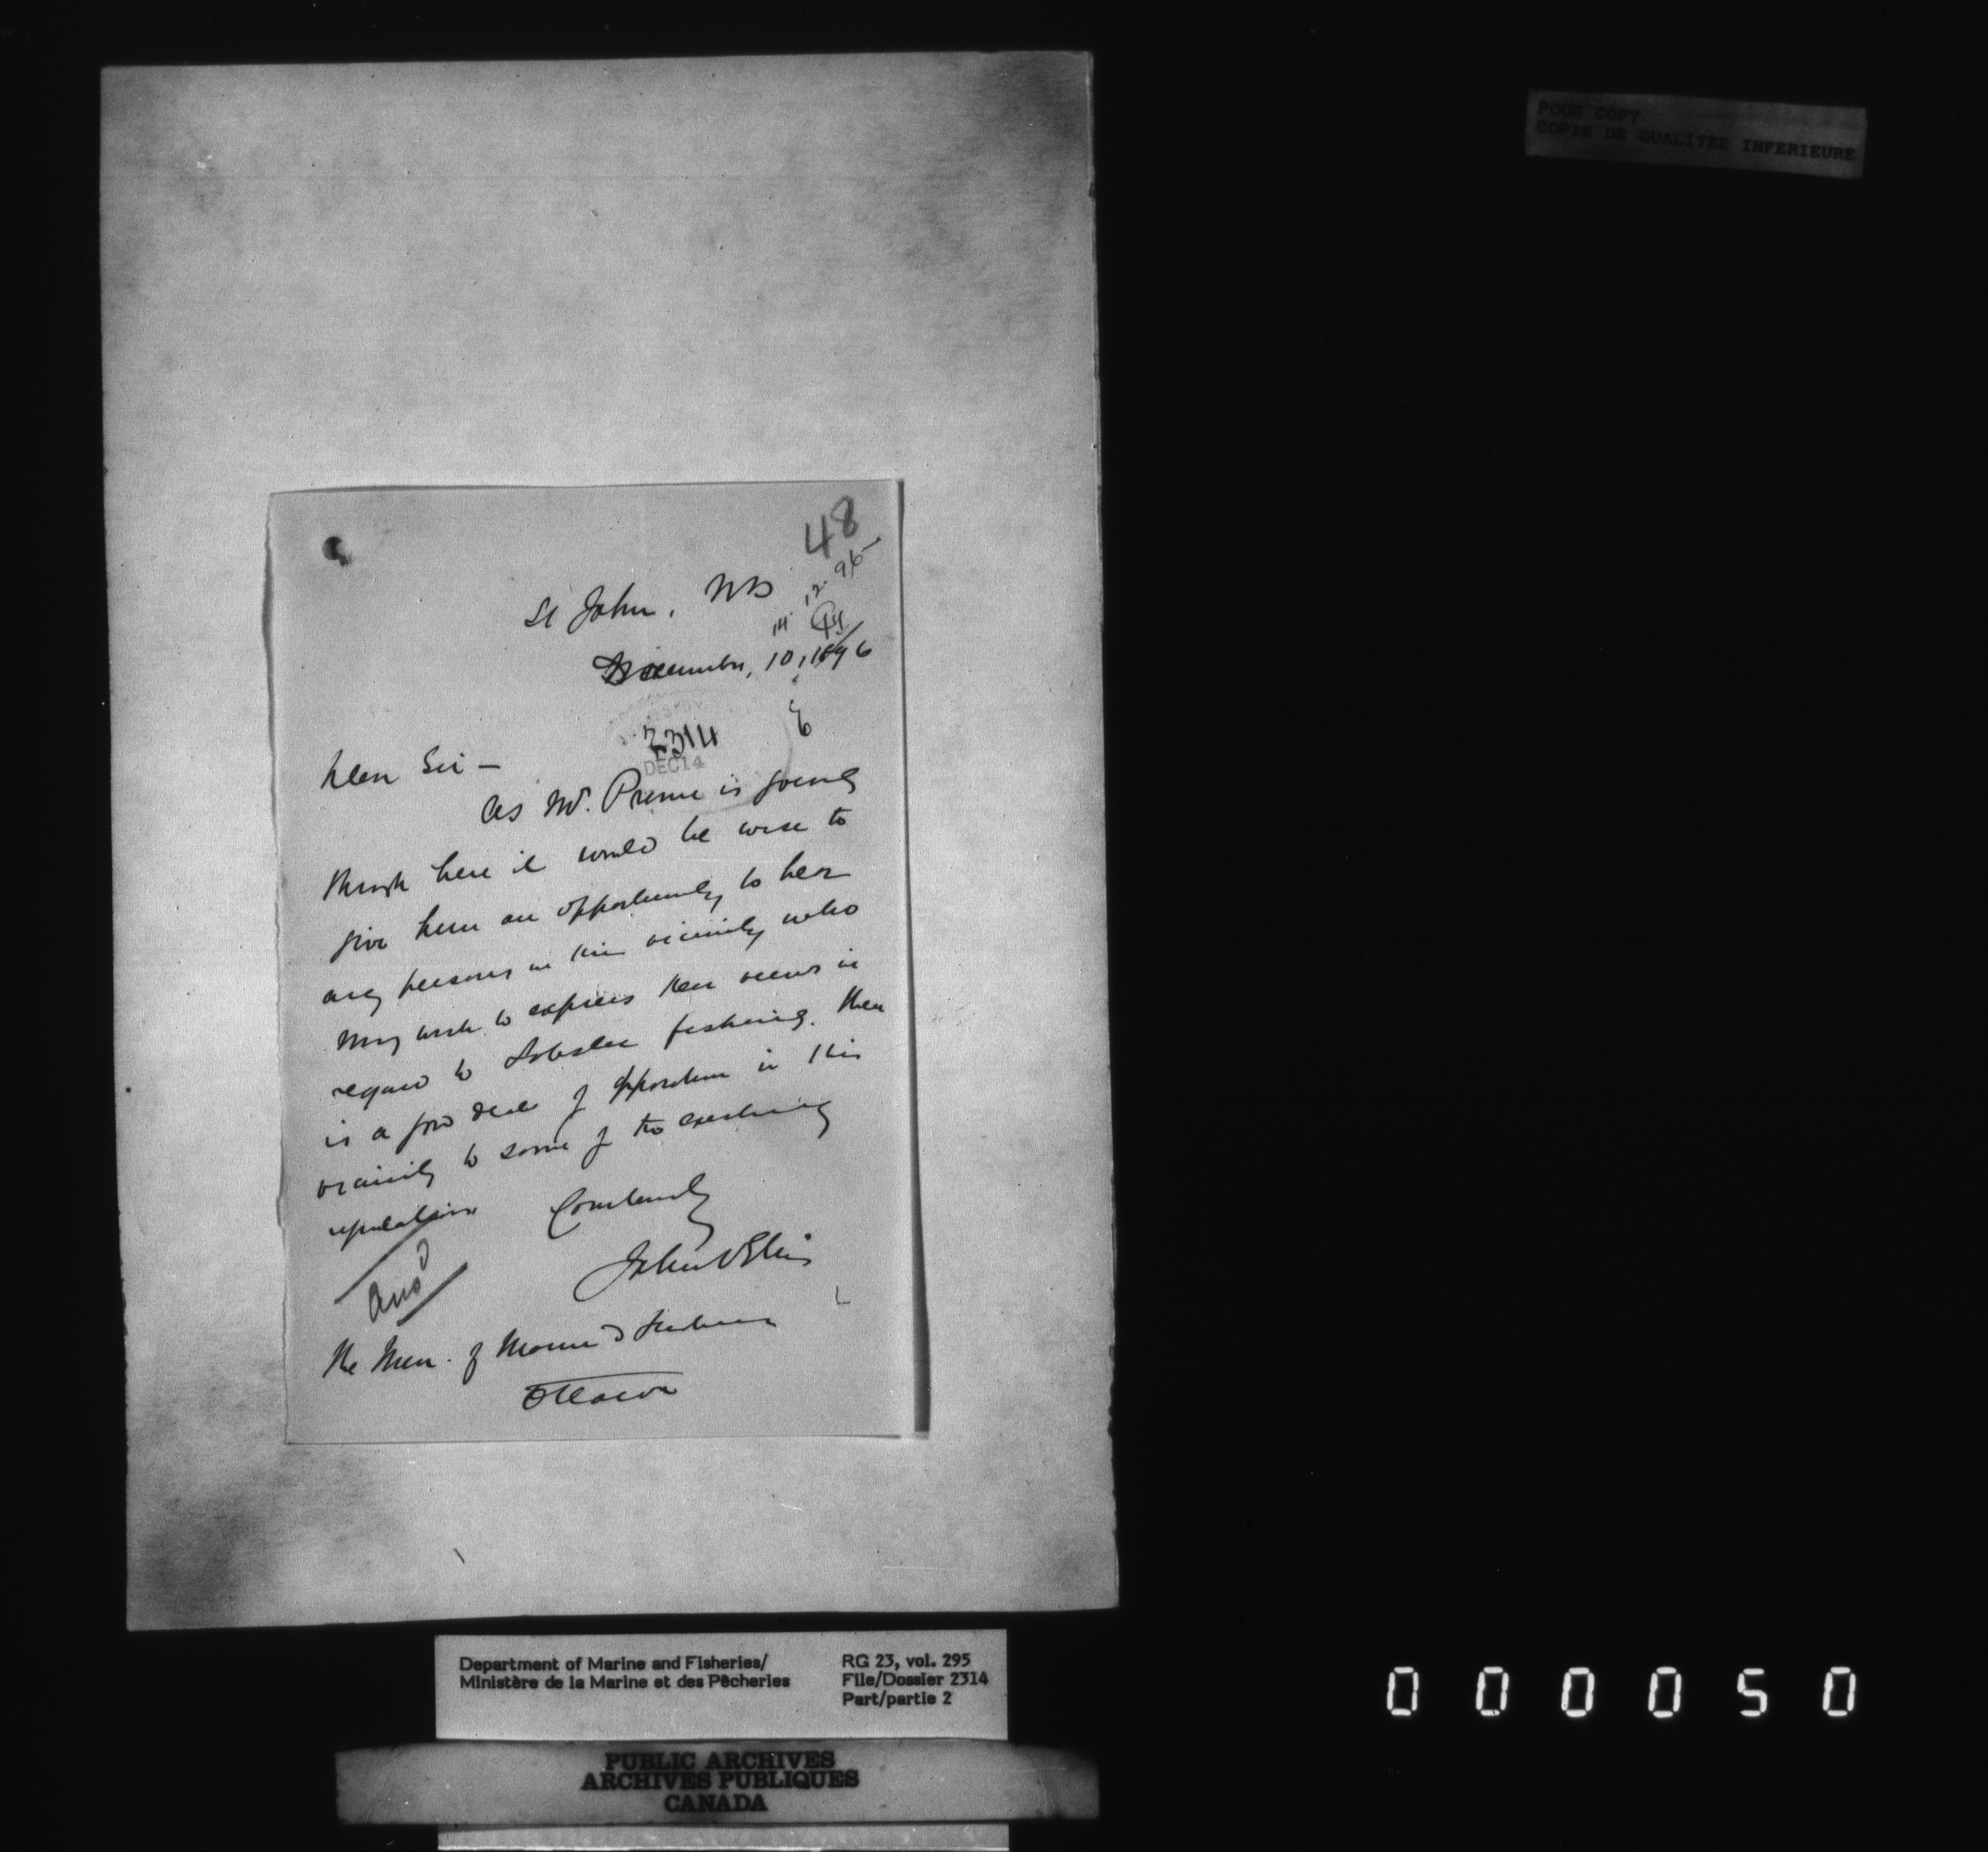 POOR COPY
COPIE DE QUALITEE INFERIEURE
48
St John, NB
14. 12. 96
December, 10, 1896
2314
DEC 14
Dear Sir —
As Mr. Prince is going
through here it would be wise to
give him an opportunity to hear
any persons in this vicinity who
may wish to express their views in
regard to Lobster fishing. There
is a good deal of opposition in this
vicinity to some of the existing
regulations
Constantly
John V Ellis
Ansd
The Min. of Marine & Fisheries
Ottawa
Department of Marine and Fisheries/
Ministère de la Marine et des Pêcheries
RG 23, vol. 295
File/Dossier 2314
Part/partie 2
PUBLIC ARCHIVES
ARCHIVES PUBLIQUES
CANADA
000050